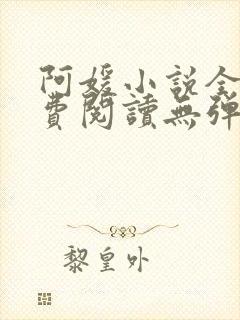 阿媛小说全
費閱讀無彈
黎皇外